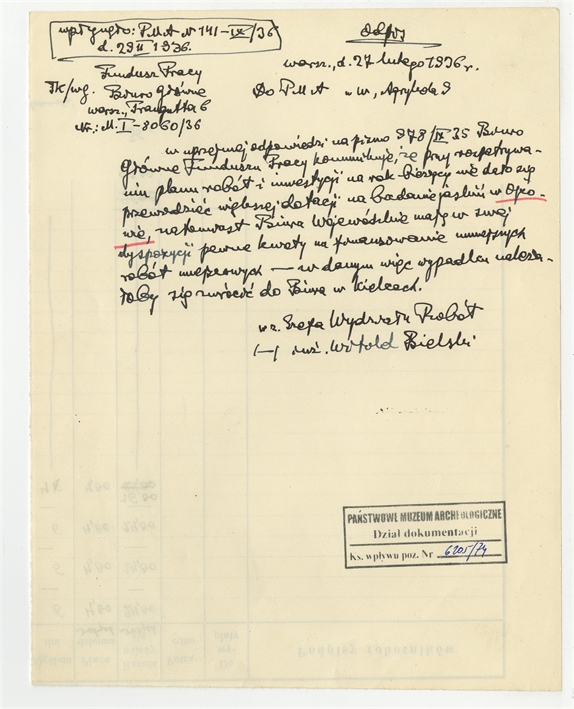 wpłynęło: P.M.A N 141-IX/36
d. 29 II 1936.
Odpis
Fundusz Pracy
TK/wg. Biuro Główne
warsz., Traugutta 6
Nr.: M. I-8060/36
warsz., d. 27 lutego 1936 r.
Do P.M.A w/w, Agrykola 9
w uprzejmej odpowiedzi na pismo 878/IX 35 Biuro
Główne Funduszu Pracy komunikuje, że przy rozpatrywa-
niu planu robót i inwestycji na rok bieżący nie dało się
przewidzieć większej dotacji na badanie jaskiń w Ojco-
wie, natomiast Biura Wojewódzkie mają w swej
dyspozycji pewne kwoty na finansowanie mniejszych
robót miejscowych — w danym więc wypadku należa-
łoby się zwrócić do Biura w Kielcach.
wz. Szefa Wydziału Robót
(—) inż. Witold Bielski
PAŃSTWOWE MUZEUM ARCHEOLOGICZNE
Dział dokumentacji
Ks. wpływu poz. Nr 6205/74